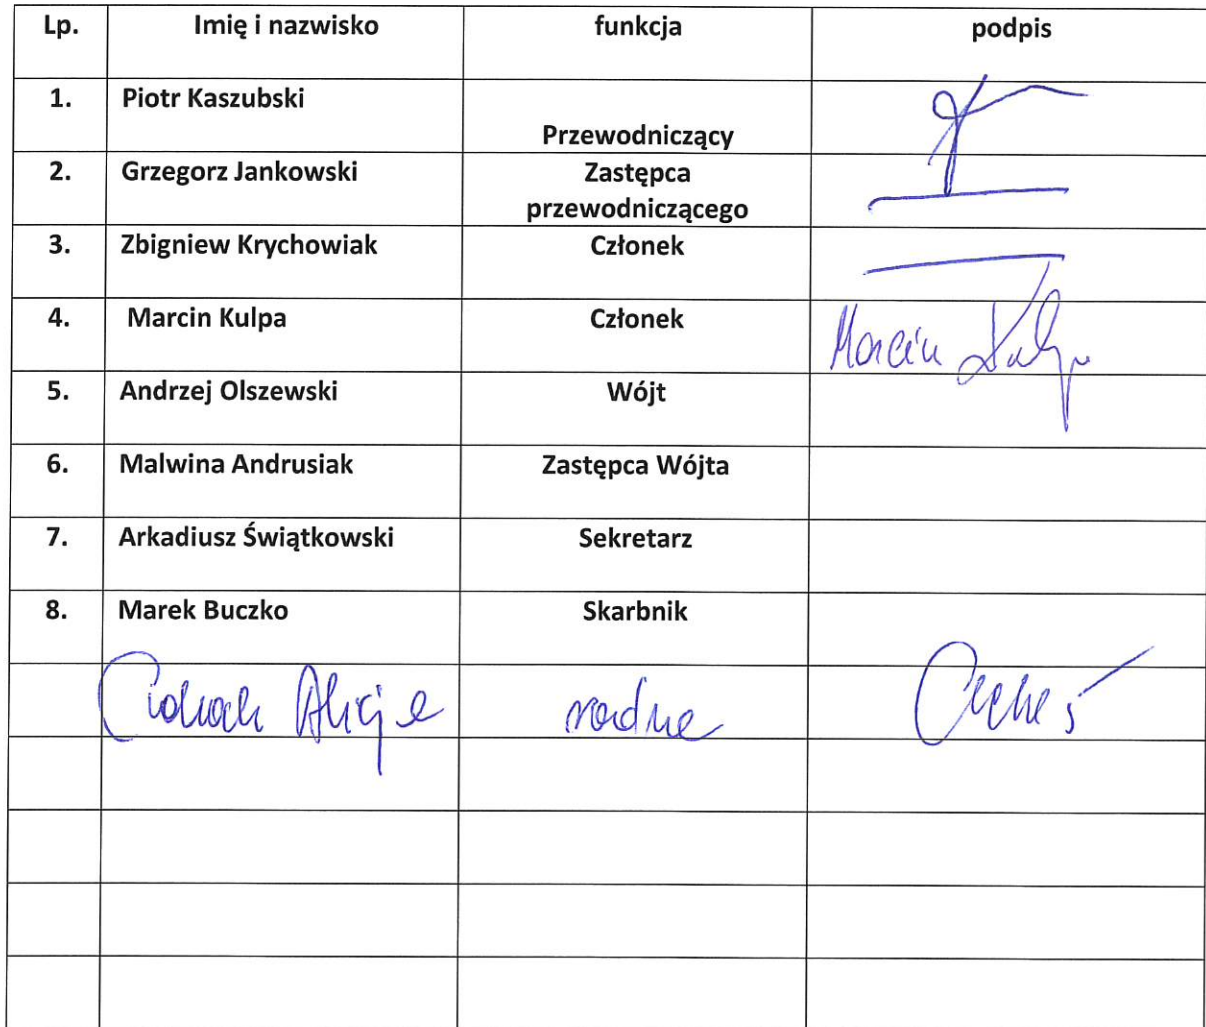 Lp. Imię i nazwisko funkcja podpis
1. Piotr Kaszubski Przewodniczący
2. Grzegorz Jankowski Zastępca
przewodniczącego
3. Zbigniew Krychowiak Członek
4. Marcin Kulpa Członek Marcin Kulpa
5. Andrzej Olszewski Wójt
6. Malwina Andrusiak Zastępca Wójta
7. Arkadiusz Świątkowski Sekretarz
8. Marek Buczko Skarbnik
Alicja radna